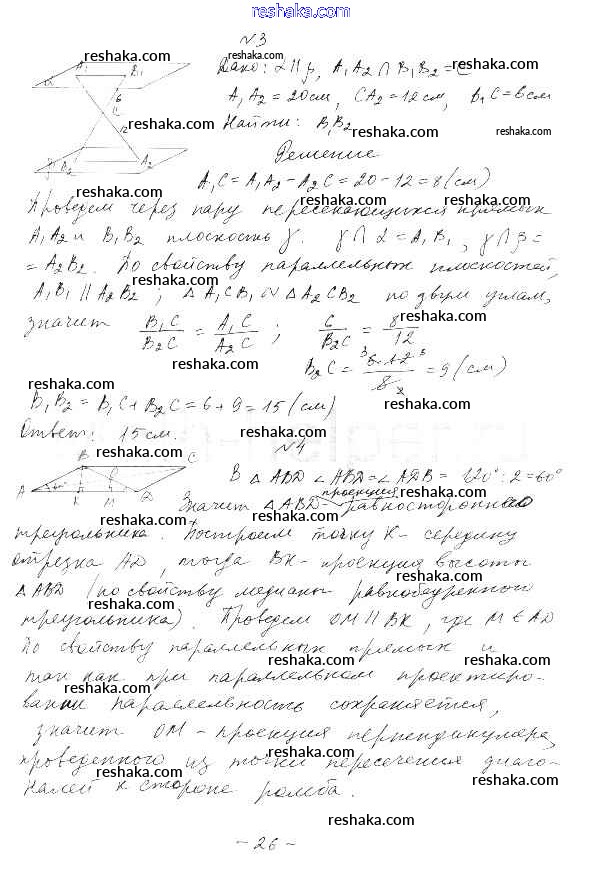 www.reshaka.com
№3
reshaka.com
Дано: α∥β, A₁A₂ ∩ B₁B₂ = C
A₁A₂ = 20 см, CA₂ = 12 см, B₁C = 6 см
Найти: B₁B₂
Решение
A₁C = A₁A₂ − A₂C = 20 − 12 = 8 (см)
Проведем через пару пересекающихся прямых
A₁A₂ и B₁B₂ плоскость γ. γ ∩ α = A₁B₁, γ ∩ β =
= A₂B₂. По свойству параллельных плоскостей,
A₁B₁ ∥ A₂B₂; △A₁CB₁ ∾ △A₂CB₂ по двум углам,
значит B₁C/B₂C = A₁C/A₂C; 6/B₂C = 8/12
B₂C = 6·12/8 = 9 (см)
B₁B₂ = B₁C + B₂C = 6 + 9 = 15 (см)
Ответ: 15 см.
№4
В △ABD ∠ABD = ∠ADB = 120° : 2 = 60°
Значит △ABD – проекция равностороннего
треугольника. Построим точку K – середину
отрезка AD, тогда BK – проекция высоты
△ABD (по свойству медианы равнобедренного
треугольника). Проведем OM ∥ BK, где M ∈ AD
По свойству параллельных прямых и
так как при параллельном проектиро-
вании параллельность сохраняется,
значит OM – проекция перпендикуляра,
проведенного из точки пересечения диаго-
налей к стороне ромба.
– 26 –